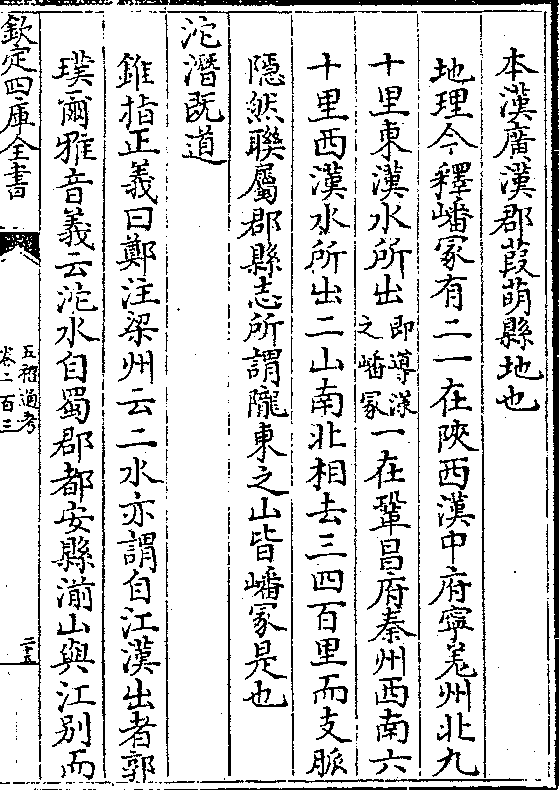 本漢廣漢郡葭萌縣地也
地理今釋嶓冢有二一在陜西漢中府寧羌州北九
十里東漢水所出即導漾之嶓冢一在鞏昌府秦州西南六
十里西漢水所出二山南北相去三四百里而支脈
隠然聯屬郡縣志所謂隴東之山皆嶓冢是也
沱潛既道
錐指正義曰鄭注梁州云二水亦謂自江漢出者郭
璞爾雅音義云沱水自蜀郡都安縣湔山與江别而
欽定四庫全書
五禮通考
卷二百三
二十五